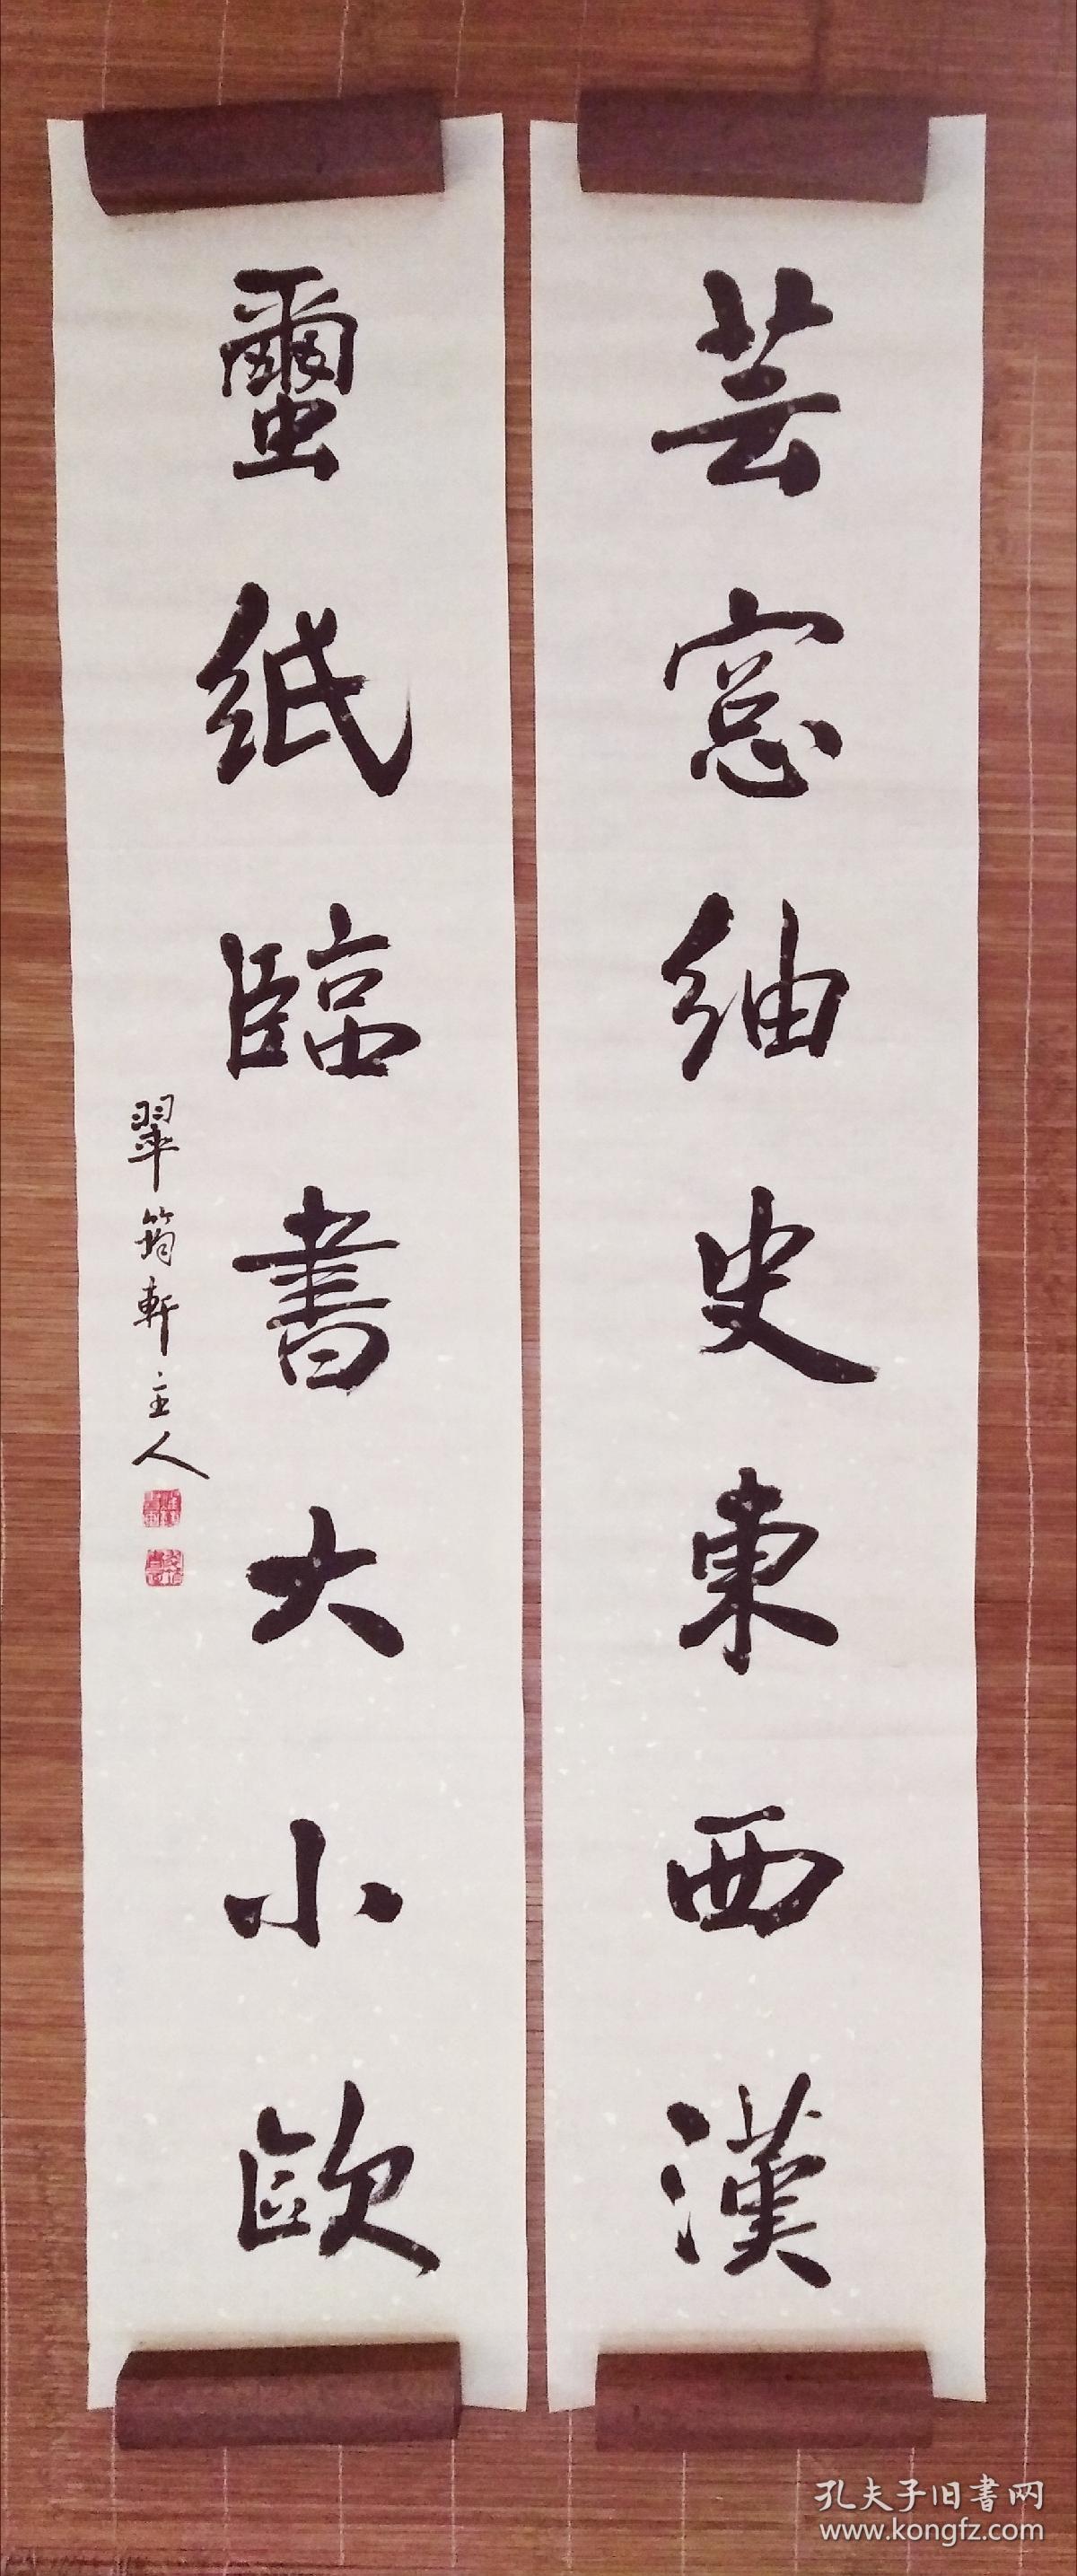 芸窓紬史東西漢
蠒紙臨書大小歐
翠筠軒主人
孔夫子旧書网
www.kongfz.com